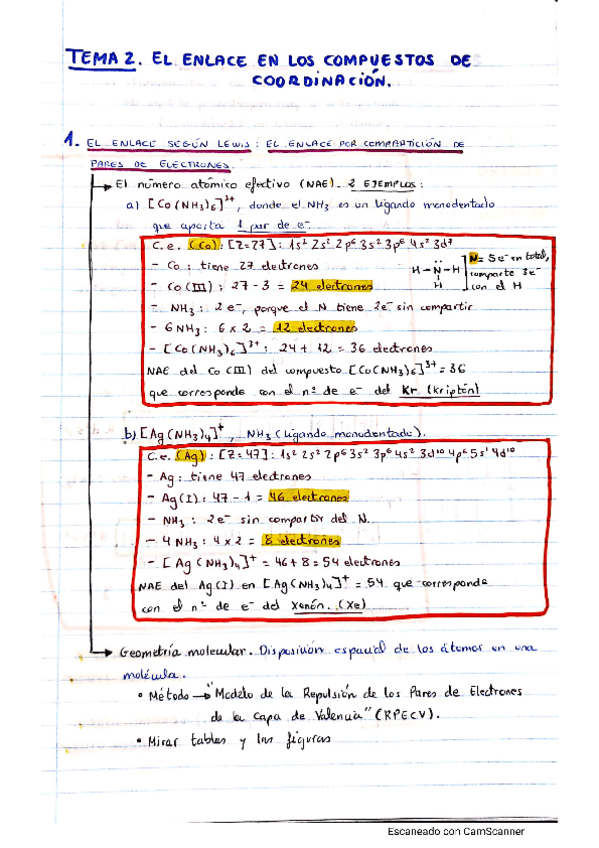 TEMA 2. EL ENLACE EN LOS COMPUESTOS DE
COORDINACIÓN.
1. EL ENLACE SEGÚN LEWIS: EL ENLACE POR COMPARTICIÓN DE
PARES DE ELECTRONES.
El número atómico efectivo (NAE). 2 EJEMPLOS:
a) [Co(NH₃)₆]³⁺, donde el NH₃ es un ligando monodentado
que aporta 1 par de e⁻.
C.e. (Co): [Z=27]: 1s² 2s² 2p⁶ 3s² 3p⁶ 4s² 3d⁷
- Co: tiene 27 electrones
- Co(III): 27 - 3 = 24 electrones
- NH₃: 2e⁻, porque el N tiene 2e⁻ sin compartir
- 6NH₃: 6 x 2 = 12 electrones
- [Co(NH₃)₆]³⁺: 24 + 12 = 36 electrones
NAE del Co(III) del compuesto [Co(NH₃)₆]³⁺ = 36
que corresponde con el nº de e⁻ del Kr (kriptón)
H-N-H
H
N = 5e⁻ en total,
comparte 3e⁻
con el H
b) [Ag(NH₃)₄]⁺, NH₃ (ligando monodentado).
C.e. (Ag): [Z=47]: 1s² 2s² 2p⁶ 3s² 3p⁶ 4s² 3d¹⁰ 4p⁶ 5s¹ 4d¹⁰
- Ag: tiene 47 electrones
- Ag(I): 47 - 1 = 46 electrones
- NH₃: 2e⁻ sin compartir del N.
- 4NH₃: 4 x 2 = 8 electrones
- [Ag(NH₃)₄]⁺ = 46 + 8 = 54 electrones
NAE del Ag(I) en [Ag(NH₃)₄]⁺ = 54 que corresponde
con el nº de e⁻ del Xenón. (Xe)
Geometría molecular. Disposición espacial de los átomos en una
molécula.
• Método → "Modelo de la Repulsión de los Pares de Electrones
de la Capa de Valencia" (RPECV).
• Mirar tablas y las figuras
Escaneado con CamScanner